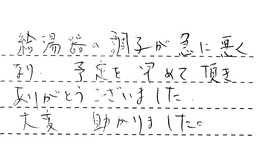 給湯器の調子が急に悪く
なり、予定を早めて頂き
ありがとうございました。
大変 助かりました。